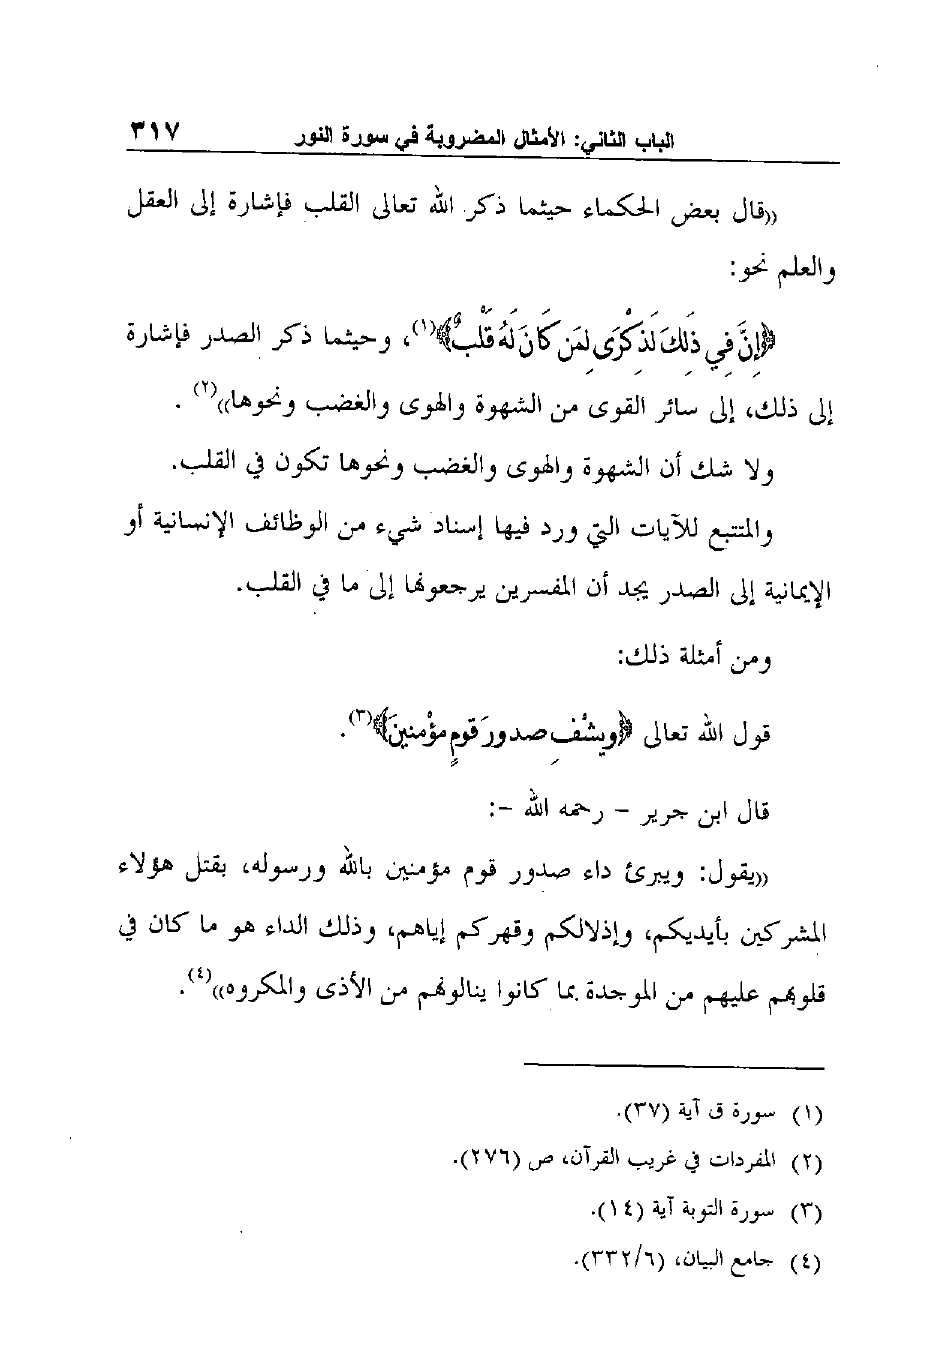 الباب الثاني: الأمثال المضروبة في سورة النور ٣١٧
((قال بعض الحكماء حيثما ذكر الله تعالى القلب فإشارة إلى العقل
والعلم نحو:
﴿إِنَّ فِي ذَلِكَ لَذِكْرَى لِمَن كَانَ لَهُ قَلْبٌ﴾(١)، وحيثما ذكر الصدر فإشارة
إلى ذلك، إلى سائر القوى من الشهوة والهوى والغضب ونحوها))(٢) .
ولا شك أن الشهوة والهوى والغضب ونحوها تكون في القلب.
والمتتبع للآيات التي ورد فيها إسناد شيء من الوظائف الإنسانية أو
الإيمانية إلى الصدر يجد أن المفسرين يرجعونها إلى ما في القلب.
ومن أمثلة ذلك:
قول الله تعالى ﴿ويشْفِ صدورَ قومٍ مؤْمنينَ﴾(٣).
قال ابن جرير - رحمه الله -:
((يقول: ويبرئ داء صدور قوم مؤمنين بالله ورسوله، بقتل هؤلاء
المشركين بأيديكم، وإذلالكم وقهركم إياهم، وذلك الداء هو ما كان في
قلوبهم عليهم من الموجدة بما كانوا ينالونهم من الأذى والمكروه))(٤).
(١) سورة ق آية (٣٧).
(٢) المفردات في غريب القرآن، ص (٢٧٦).
(٣) سورة التوبة آية (١٤).
(٤) جامع البيان، (٣٣٢/٦).